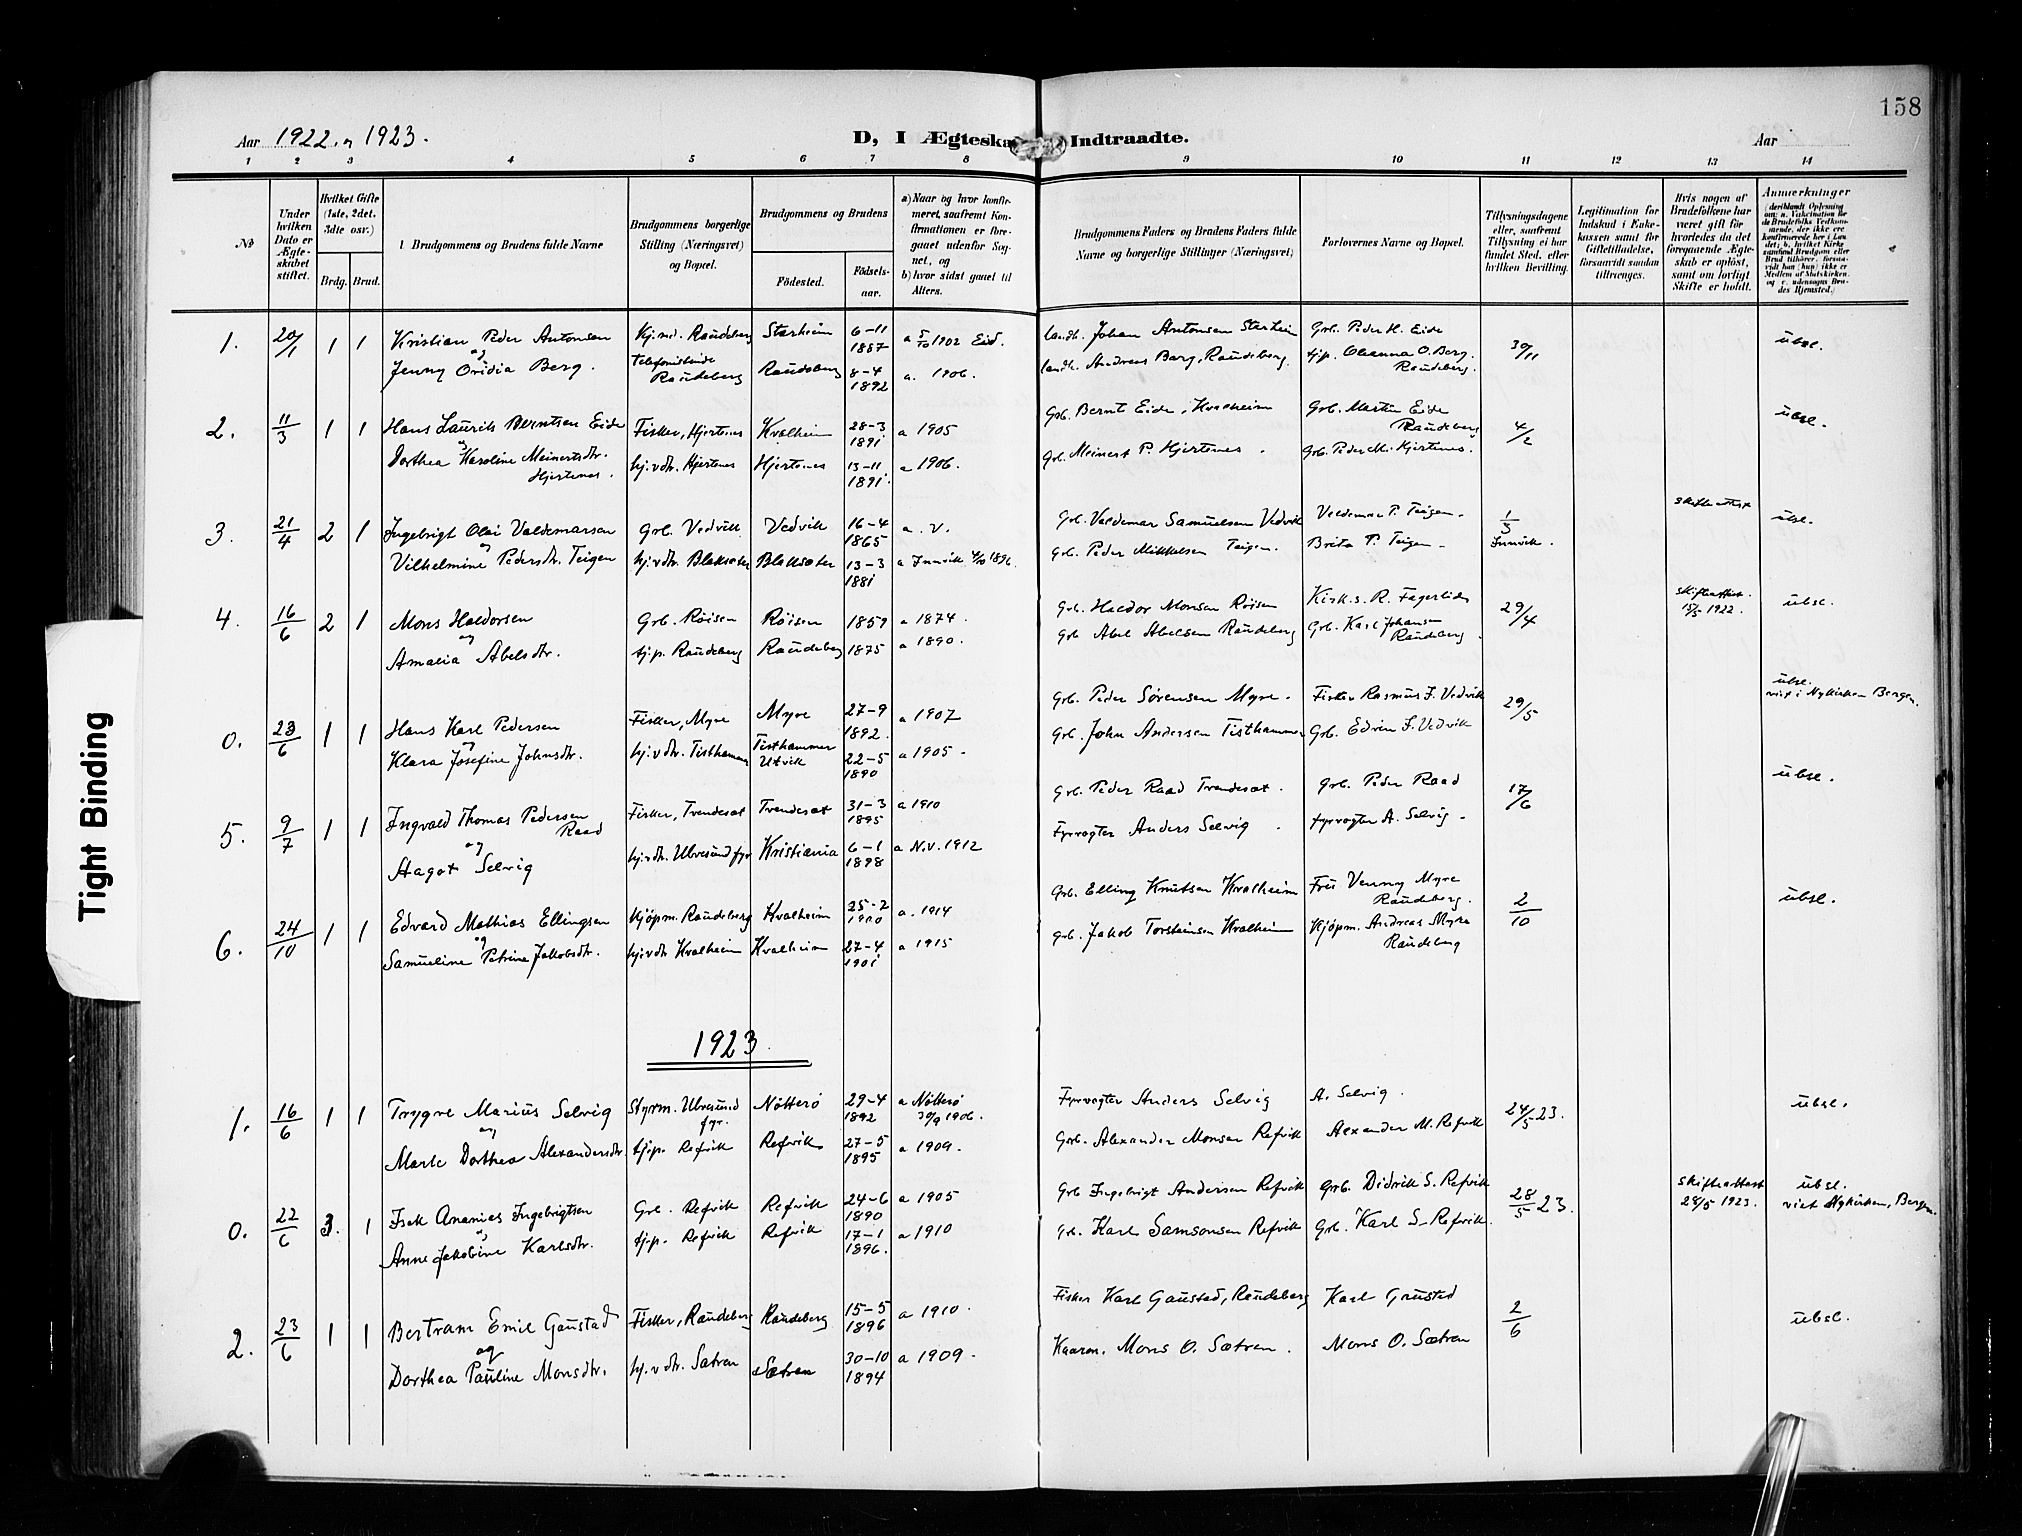 158
Aar 1922 og 1923.
D, I Ægteska Indtraadte.
Aar
1 2 3 4 5 6 7 8 9 10 11 12 13 14
No
Under hvilken Dato er Ægteskabet stiftet.
Hvilket Gifte (1ste, 2det, 3die osv.)
Brdg. Brud.
Brudgommens og Brudens fulde Navne
Brudgommens borgerlige Stilling (Næringsvei) og Bopæl.
Brudgommens og Brudens
Fødested.
Fødselsaar.
a) Naar og hvor konfirmeret, saafremt Konfirmationen er foregaaet udenfor Sognet, og
b) hvor sidst gaaet til Alters.
Brudgommens Faders og Brudens Faders fulde Navne og borgerlige Stillinger (Næringsvei)
Forlovernes Navne og Bopæl.
Tillysningsdagene eller, saafremt Tillysning ei har fundet Sted, efter hvilken Bevilling.
Legitimation for Indskud i Enkekassen samt for Giftetilladelse, forsaavidt saadan tiltrænges.
Hvis nogen af Brudefolkene har været gift før hvorledes da det foregaaende Ægteskab er opløst, samt om lovligt Skifte er holdt.
Anmærkninger
1. 20/1 1 1 Kristian Peder Antonsen Kj.md. Raudeberg Starheim 6-11 1887 a 5/10 1902 Eid. landh. Johan Antonsen Starheim Grb. Peder H. Eide 30/11 ubsl.
og
Jenny Oridia Berg. Telefonistinde Raudeberg Raudeberg 8-4 1892 a. 1906. landh. Andreas Berg, Raudeberg. tj.p. Oleanna O. Berg. Raudeberg.
2. 11/3 1 1 Hans Laurits Berntsen Eide Fisker, Hjertenes Kvalheim 28-3 1891 a 1905 Grb. Bernt Eide, Kvalheim Grb. Martin Eide Raudeberg 4/2 ubsl.
og
Dorthea Karoline Meinertsdtr. Hjertenes. hj.v.dtr. Hjertenes Hjertenes 13-11 1891. a 1906. Grb. Meinert P. Hjertenes. Grb. Peder M. Hjertenes.
3. 21/4 2 1 Ingebrigt Olai Valdemarsen Grb. Vedvik Vedvik 16-4 1865 a. V. Grb. Valdemar Samuelsen Vedvik Valdemar P. Teigen. 1/3 Innvik. skifteattest ubsl.
og
Vilhelmine Pedersdtr. Teigen hj.v.dtr. Blaksæter Blaksæter 13-3 1881 a Innvik 4/10 1896. Grb. Peder Mikkelsen Teigen. Brita P. Teigen
4. 16/6 2 1 Mons Haldorsen Grb. Røisen Røisen 1859 a 1874. Grb. Haldor Monsen Røisen Kirk.s. R. Fagerlid 29/4 skifteattest. 15/5 1922. ubsl.
og
Amalia Abelsdtr. tj.p. Raudeberg Raudeberg 1875 a 1890. Grb Abel Abelsen Raudeberg Grb. Karl Johansen Raudeberg
0. 23/6 1 1 Hans Karl Pedersen Fisker, Myre Myre 27-9 1892. a 1907 Grb. Peder Sørensen Myre. Fisker Rasmus J. Vedvik 29/5 ubsl. viet i Nykirken Bergen.
og
Klara Josefine Johnsdtr. hj.v.dtr. Tisthammer Tisthammer Utvik 22-5 1890 a 1905. Grb. John Andersen Tisthammer Grb. Edvin J. Vedvik
5. 9/7 1 1 Ingvald Thomas Pedersen Raad Fisker, Trendesat Trendesat 31-3 1895 a 1910 Grb. Peder Raad Trendesat. Grb. Peder Raad 17/6 ubsl.
og
Aagot Selvig hj.v.dtr. Ulvesund fyr Kristiania 6-1 1898 a N.V. 1912 Fyrvogter Anders Selvig. fyrvogter A. Selvig.
6. 24/10 1 1 Edvard Mathias Ellingsen Kjøpm. Raudeberg Kvalheim 25-2 1900 a. 1914 Grb. Elling Knutsen Kvalheim Fru Venny Myre Raudeberg. 2/10 ubsl.
og
Samueline Petrine Jakobsdtr. hj.v.dtr Kvalheim Kvalheim 27-4 1901 a 1915 Grb. Jakob Torsteinsen Kvalheim Kjøpm. Andreas Myre Raudeberg
1923.
1. 16/6 1 1 Trygve Marius Selvig Styrm. Ulvesund fyr. Nøtterø 29-4 1892 a Nøtterø 30/9 1906. Fyrvogter Anders Selvig A. Selvig. 24/5 23. ubsl.
og
Marte Dorthea Alexandersdtr. tj.p. Refvik Refvik 27-5 1895 a 1909. Grb. Alexander Monsen Refvik Alexander M. Refvik
0. 22/6 3. 1 Isak Ananias Ingebrigtsen Grb. Refvik Refvik 24-6 1890 a 1905 Grb Ingebrigt Andersen Refvik Grb. Didrik S. Refvik 28/5 23. skifteattest 28/5 1923. ubsl. viet Nykirken, Bergen.
og
Anne Jakobine Karlsdtr. tj.p. Refvik Refvik 17-1 1896. a 1910 Grb. Karl Samsonsen Refvik Grb. Karl S. Refvik.
2. 23/6 1 1 Bertram Emil Gaustad Fisker, Raudeberg Raudeberg 15-5 1896 a 1910. Fisker Karl Gaustad, Raudeberg Karl Gaustad 2/6 ubsl.
og
Dorthea Pauline Monsdtr. hj.v.dtr. Sætren Sætren 30-10 1894 a 1909. Kaarm. Mons O. Sætren. Mons O. Sætren
Tight Binding